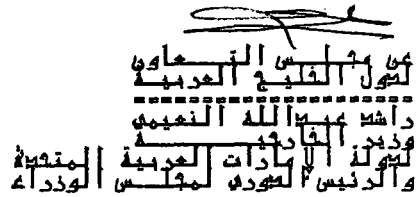 عن مجلس التعاون
لدول الخليج العربية
راشد عبدالله النعيمي
وزير الخارجية
لدولة الامارات العربية المتحدة
والرئيس الدوري لمجلس الوزراء